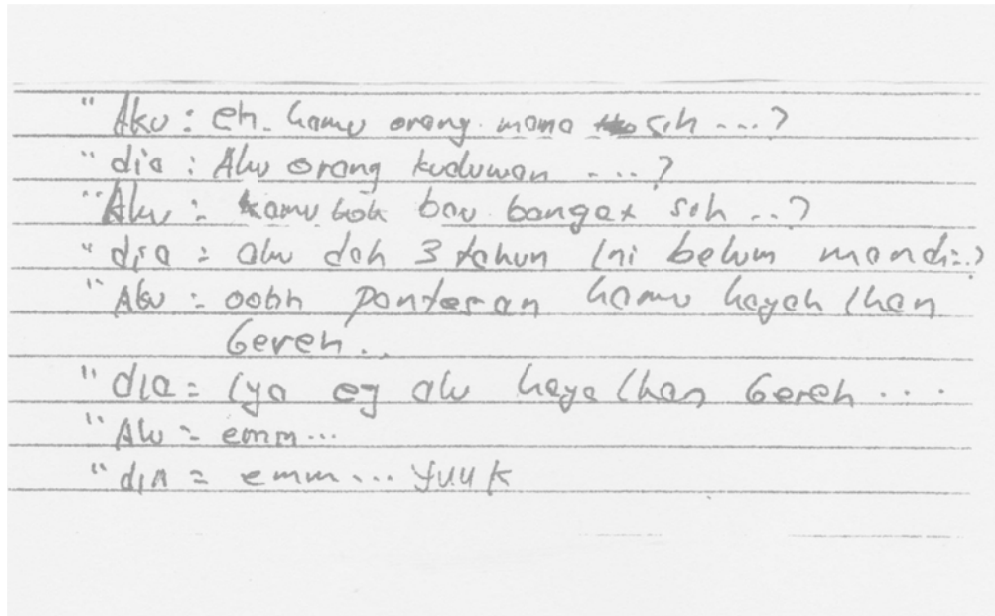 " Aku : eh. kamu orang mana sih ...?
" dia : Aku orang kuduwan ....?
" Aku : kamu koh bau banget sih ..?
" dia : aku dah 3 tahun ini belum mandi..?
" Aku : oohh pantesan kamu kayak ikan
Gereh..
" dia : iya eg aku kaya ikan Gereh ...
" Aku : emm...
" dia = emm... yuuk